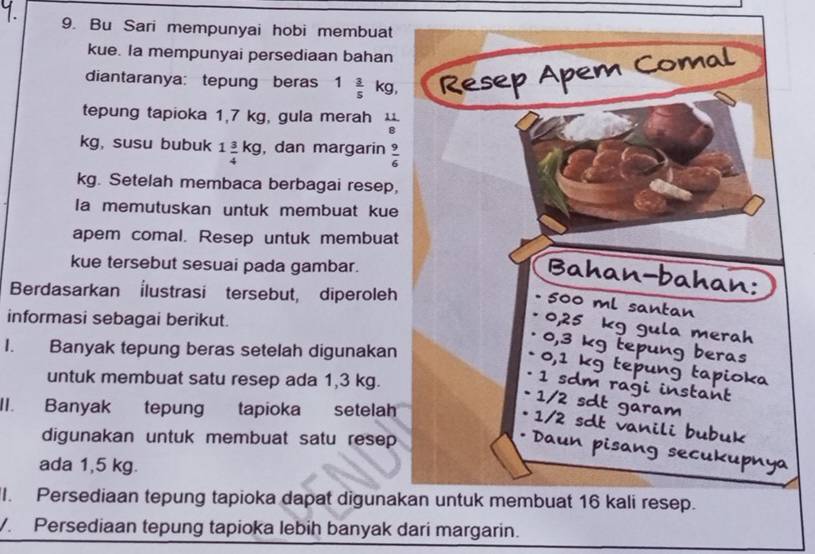 9. Bu Sari mempunyai hobi membuat
kue. Ia mempunyai persediaan bahan
diantaranya: tepung beras 1 3/5 kg,
tepung tapioka 1,7 kg, gula merah 11/8
kg, susu bubuk 1 3/4 kg, dan margarin 9/6
kg. Setelah membaca berbagai resep,
Ia memutuskan untuk membuat kue
apem comal. Resep untuk membuat
kue tersebut sesuai pada gambar.
Berdasarkan ilustrasi tersebut, diperoleh
informasi sebagai berikut.
I. Banyak tepung beras setelah digunakan
untuk membuat satu resep ada 1,3 kg.
II. Banyak tepung tapioka setelah
digunakan untuk membuat satu resep
ada 1,5 kg.
II. Persediaan tepung tapioka dapat digunakan untuk membuat 16 kali resep.
V. Persediaan tepung tapioka lebih banyak dari margarin.
Resep Apem Comal
Bahan-bahan:
• 500 ml santan
• 0,25 kg gula merah
• 0,3 kg tepung beras
• 0,1 kg tepung tapioka
• 1 sdm ragi instant
• 1/2 sdt garam
• 1/2 sdt vanili bubuk
• Daun pisang secukupnya